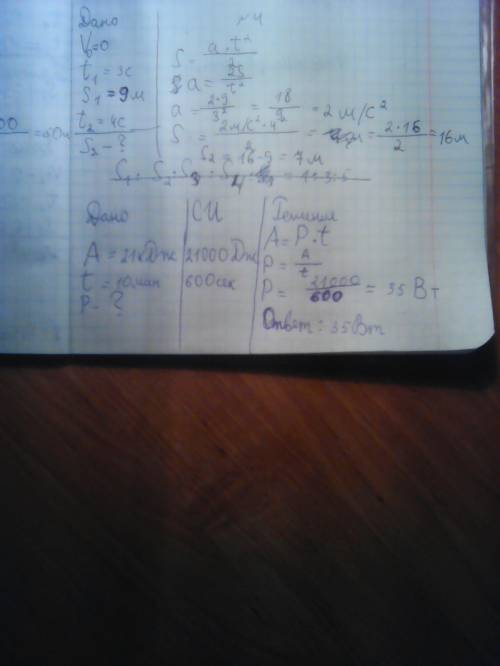 Дано
V₀=0
t₁ = 3с
S₁ = 9м
t₂ = 4с
S₂ - ?
№4
S = a·t²/2
a = 2S/t²
a = 2·9/3² = 18/9 = 2 м/с²
S = 2м/с²·4²/2 = 2·16/2 = 16м
S₂ = 16-9 = 7 м
Дано
A = 21кДж
t = 10мин
P - ?
СИ
21000Дж
600сек
Решения
A = P·t
P = A/t
P = 21000/600 = 35 Вт
Ответ: 35Вт